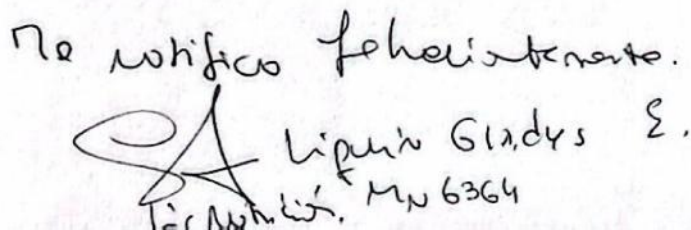 Me notifico fehacientemente.
Liquin Gladys E.
Lic. Nutrición. MN 6364